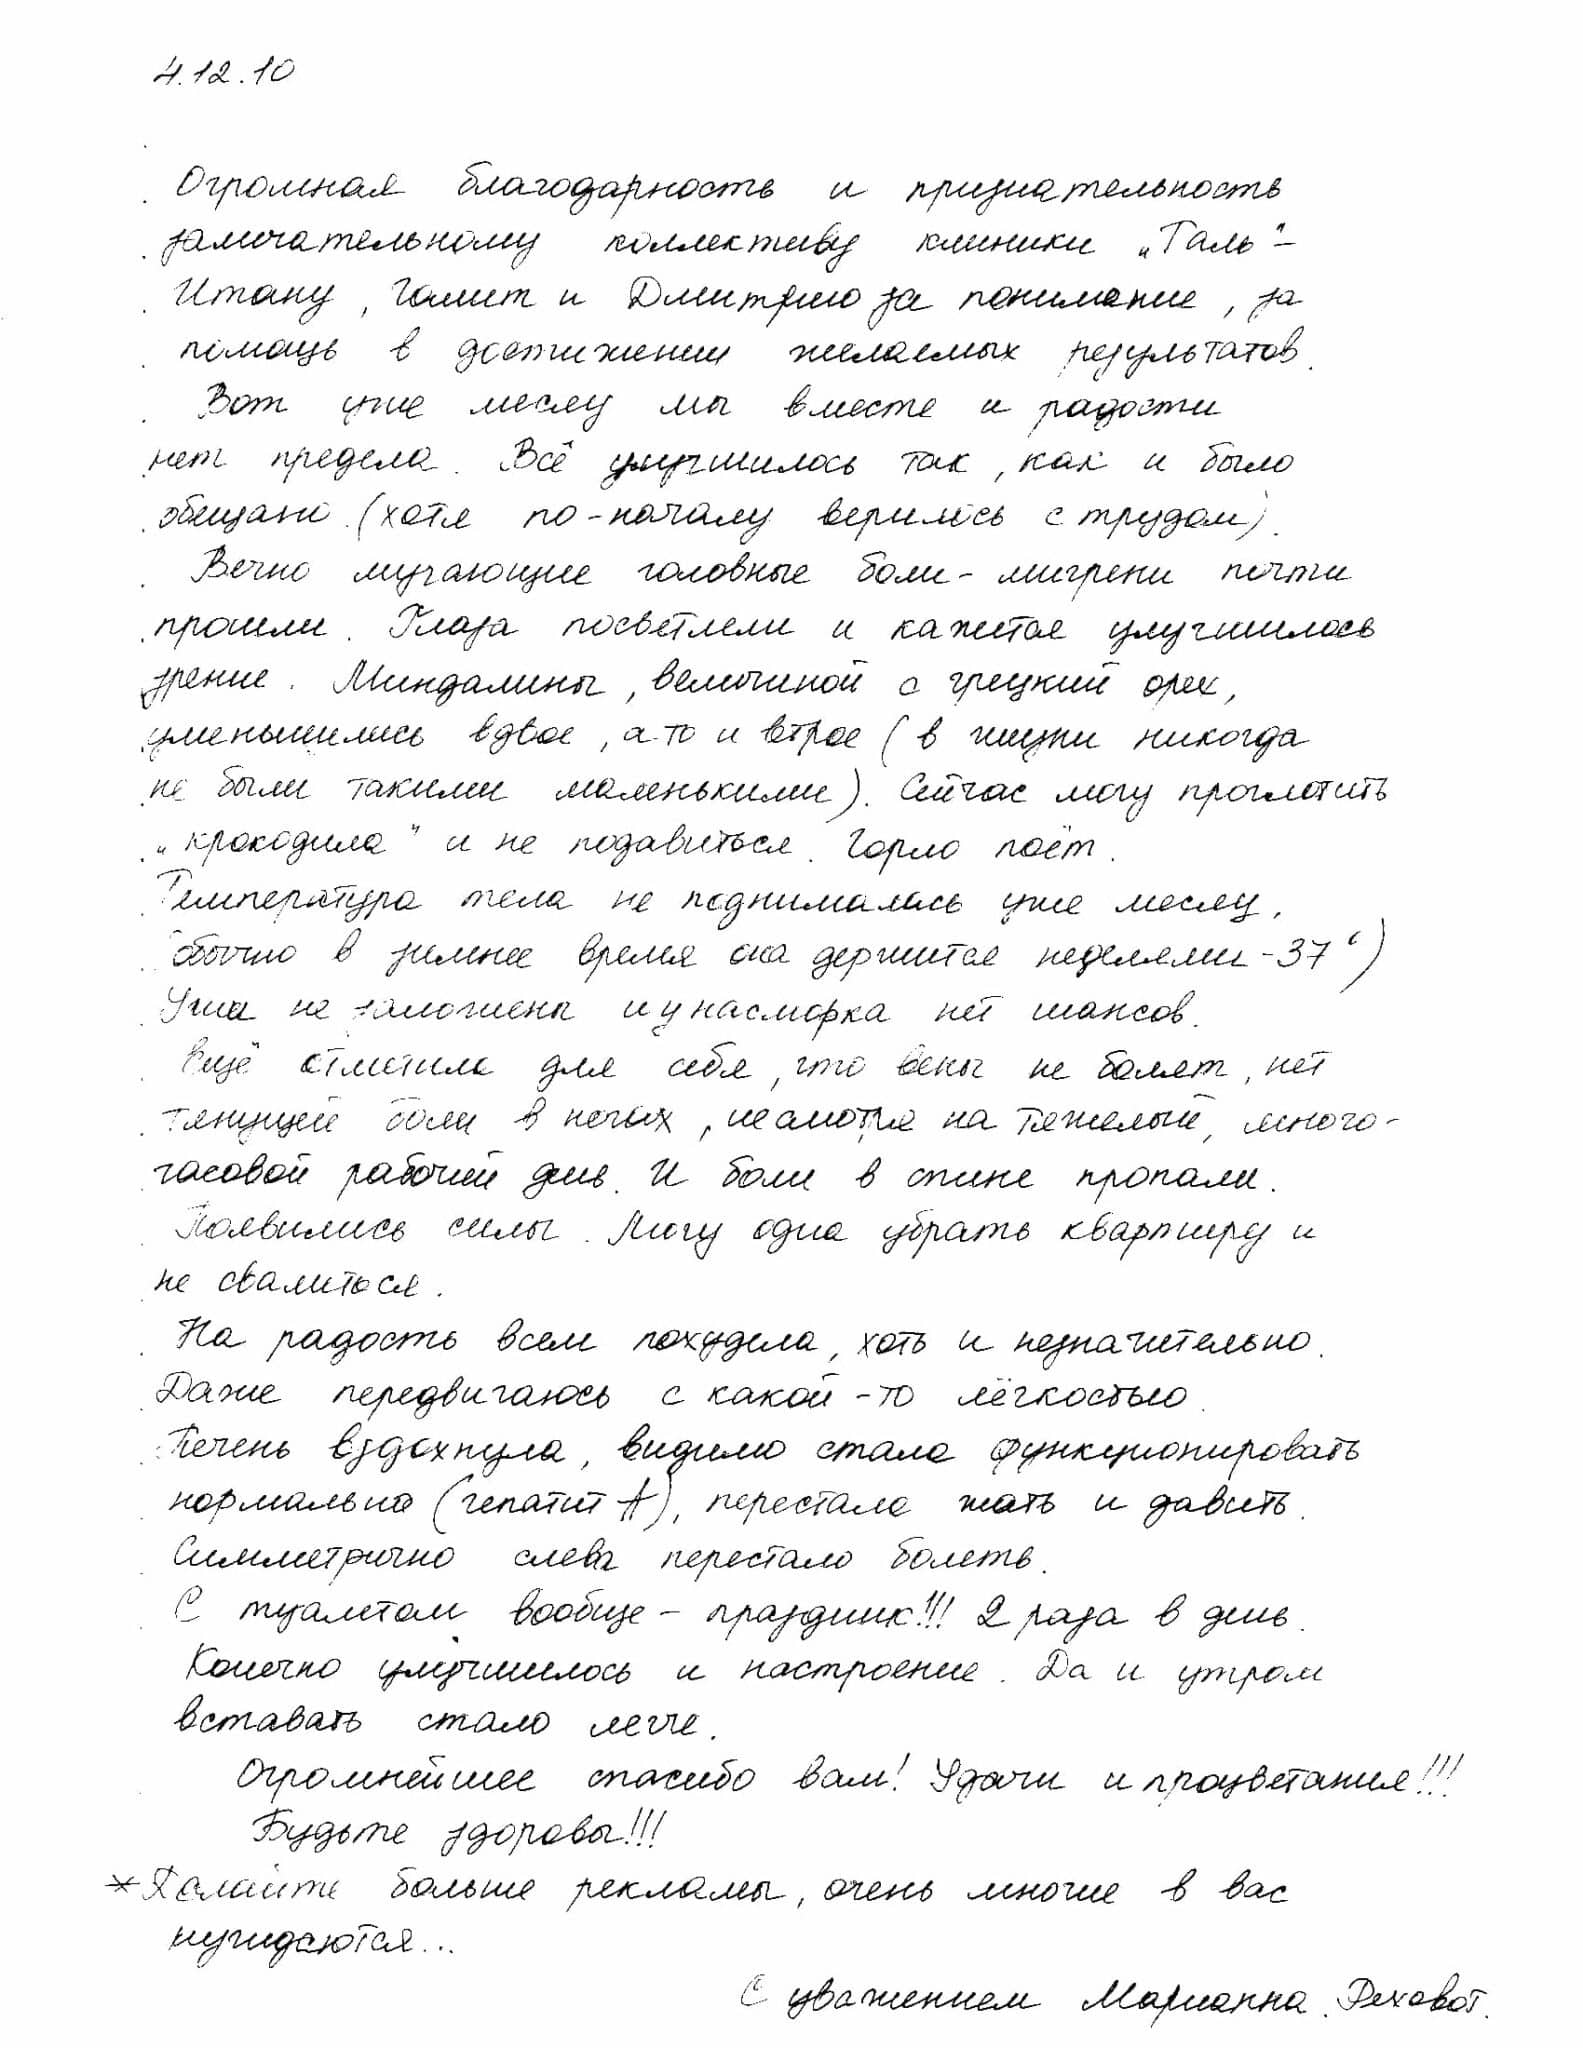 4.12.10
Огромная благодарность и признательность
замечательному коллективу клиники „Галь"-
Итану, Галит и Дмитрию за понимание, за
помощь в достижении желаемых результатов.
Вот уже месяц мы вместе и радости
нет предела. Всё улучшилось так, как и было
обещано (хотя по-началу верилось с трудом).
Вечно мучающие головные боли - мигрени почти
прошли. Глаза посветлели и кажется улучшилось
зрение. Миндалины, величиной с грецкий орех,
уменьшились вдвое, а то и втрое (в жизни никогда
не были такими маленькими). Сейчас могу проглотить
„крокодила" и не подавиться. Горло поёт.
Температура тела не поднималась уже месяц,
обычно в зимнее время она держится неделями - 37°)
Уши не заложены и у насморка нет шансов.
Ещё отметила для себя, что вены не болят, нет
тянущей боли в ногах, несмотря на тяжелый, много-
часовой рабочий день. И боли в спине пропали.
Появились силы. Могу одна убрать квартиру и
не свалиться.
На радость всем похудела, хоть и незначительно.
Даже передвигаюсь с какой-то лёгкостью.
Печень вздохнула, видимо стала функционировать
нормально (гепатит А), перестала жать и давить.
Симметрично слева перестало болеть.
С туалетом вообще - праздник!!! 2 раза в день.
Конечно улучшилось и настроение. Да и утром
вставать стало легче.
Огромнейшее спасибо вам! Удачи и процветания!!!
Будьте здоровы!!!
* Делайте больше рекламы, очень многие в вас
нуждаются...
С уважением Марианна. Реховот.